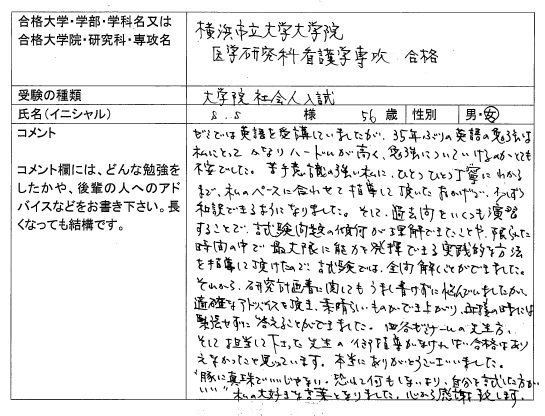 合格大学・学部・学科名又は
合格大学院・研究科・専攻名
横浜市立大学大学院
医学研究科看護学専攻 合格
受験の種類
大学院社会人入試
氏名(イニシャル)
S.S 様 56 歳 性別 男・女
コメント
コメント欄には、どんな勉強を
したかや、後輩の人へのアド
バイスなどをお書き下さい。長
くなっても結構です。
ゼミでは英語を受講していましたが、35年ぶりの英語の勉強は
私にとって かなりハードルが高く、勉強についていけるのかとても
不安でした。苦手意識の強い私に、ひとつひとつ丁寧にわかる
まで、私のペースに合わせて指導して頂いたおかげで、
相談できるようになりました。そして、過去問をいくつも演習
することで、試験問題の傾向が理解できたことや、限られた
時間の中で最大限に能力を発揮できる実践的な方法
を指導して頂けたので、試験では、全問解くことができました。
それから、研究計画書に関してもうまく書けずに悩んでいましたが、
適確なアドバイスを頂き、素晴らしいものができ上がり、面接の時には
緊張せずに答えることができました。四谷ゼミナールの先生方、
そして担当して下さった先生の御指導がなければ合格はあり
えなかったと思っています。本当にありがとうございました。
"豚に真珠でいいじゃない。恐れて何もしないより、自分を試した方が
いい" 私の大好きな言葉となりました。心から感謝致します。